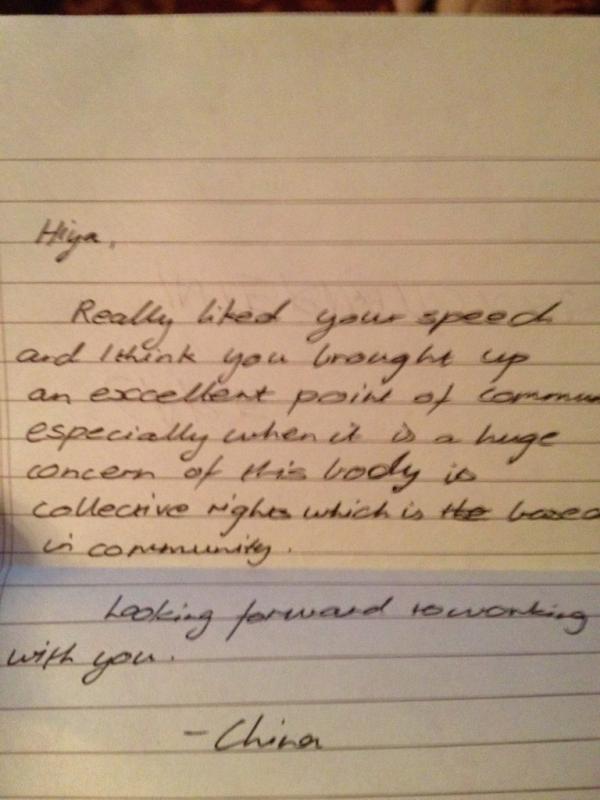 Hiya,
Really liked your speech
and I think you brought up
an excellent point of commun
especially when it is a huge
concern of this body is
collective rights which is the based
in community.
Looking forward to working
with you.
- China